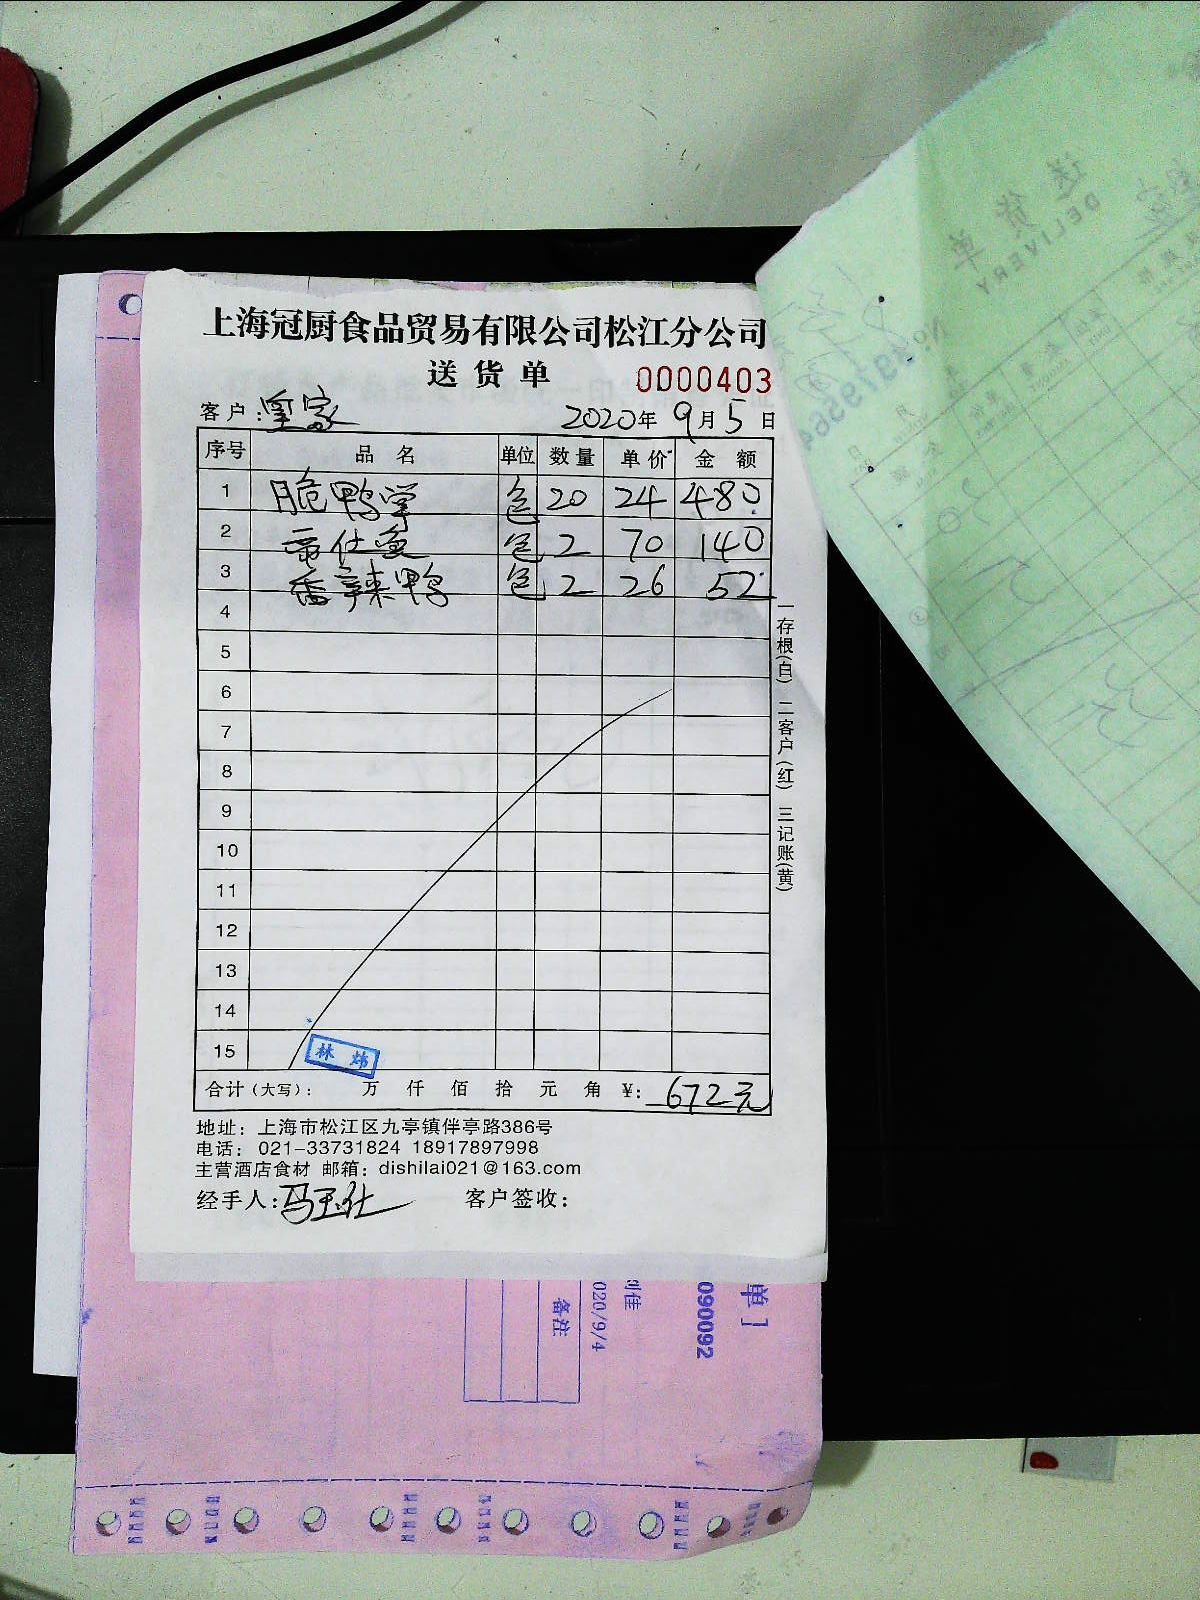 上海冠厨食品贸易有限公司松江分公司
送货单 0000403
客户:皇家 2020年9月5日
序号 品名 单位 数量 单价 金额
1 脆鸭掌 包 20 24 480
2 仕 包 2 70 140
3 香辣鸭 包 2 26 52
4
5
6
7
8
9
10
11
12
13
14
15
林炜
合计(大写): 万 仟 佰 拾 元 角 ¥: 672元
地址:上海市松江区九亭镇伴亭路386号
电话:021-33731824 18917897998
主营酒店食材 邮箱:dishilai021@163.com
经手人:马玉仕 客户签收:
一存根(白) 二客户(红) 三记账(黄)
单]
090092
佳
020/9/4
备注
送货单
DELIVERY